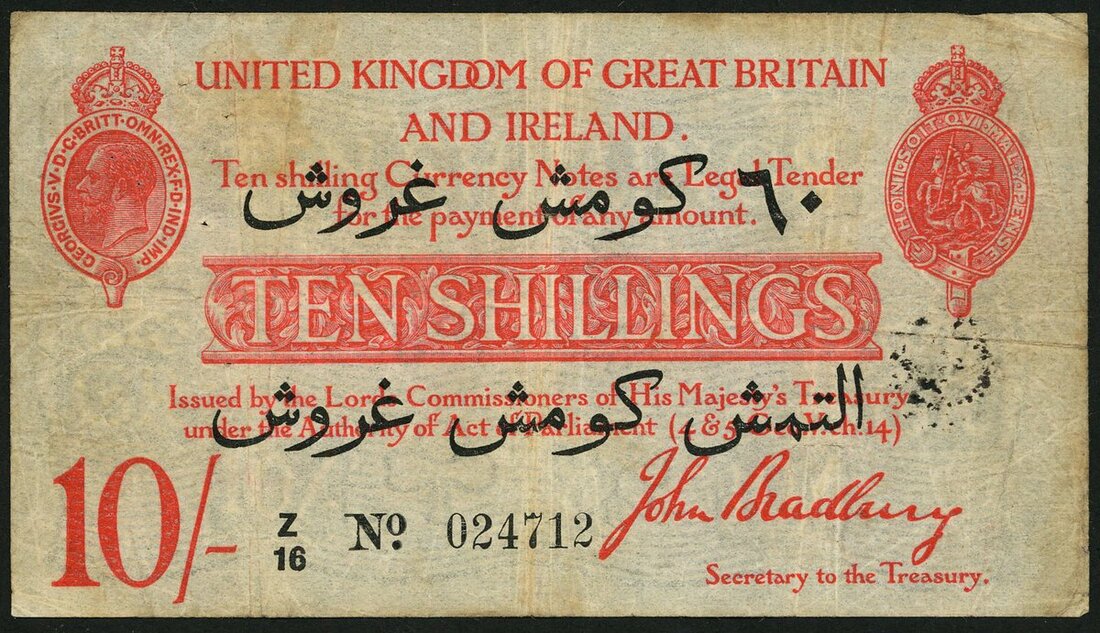 UNITED KINGDOM OF GREAT BRITAIN
AND IRELAND.
GEORGIVS·V·D·G·BRITT·OMN·REX·F·D·IND·IMP·
HONI·SOIT·QVI·MAL·Y·PENSE
Ten shilling Currency Notes are Legal Tender
for the payment of any amount.
٦٠ كومش غروش
TEN SHILLINGS
Issued by the Lords Commissioners of His Majesty's Treasury
under the Authority of Act of Parliament (4 & 5 Geo. V. ch. 14)
التمش كومش غروش
10/-
Z
16
Nº. 024712
John Bradbury
Secretary to the Treasury.